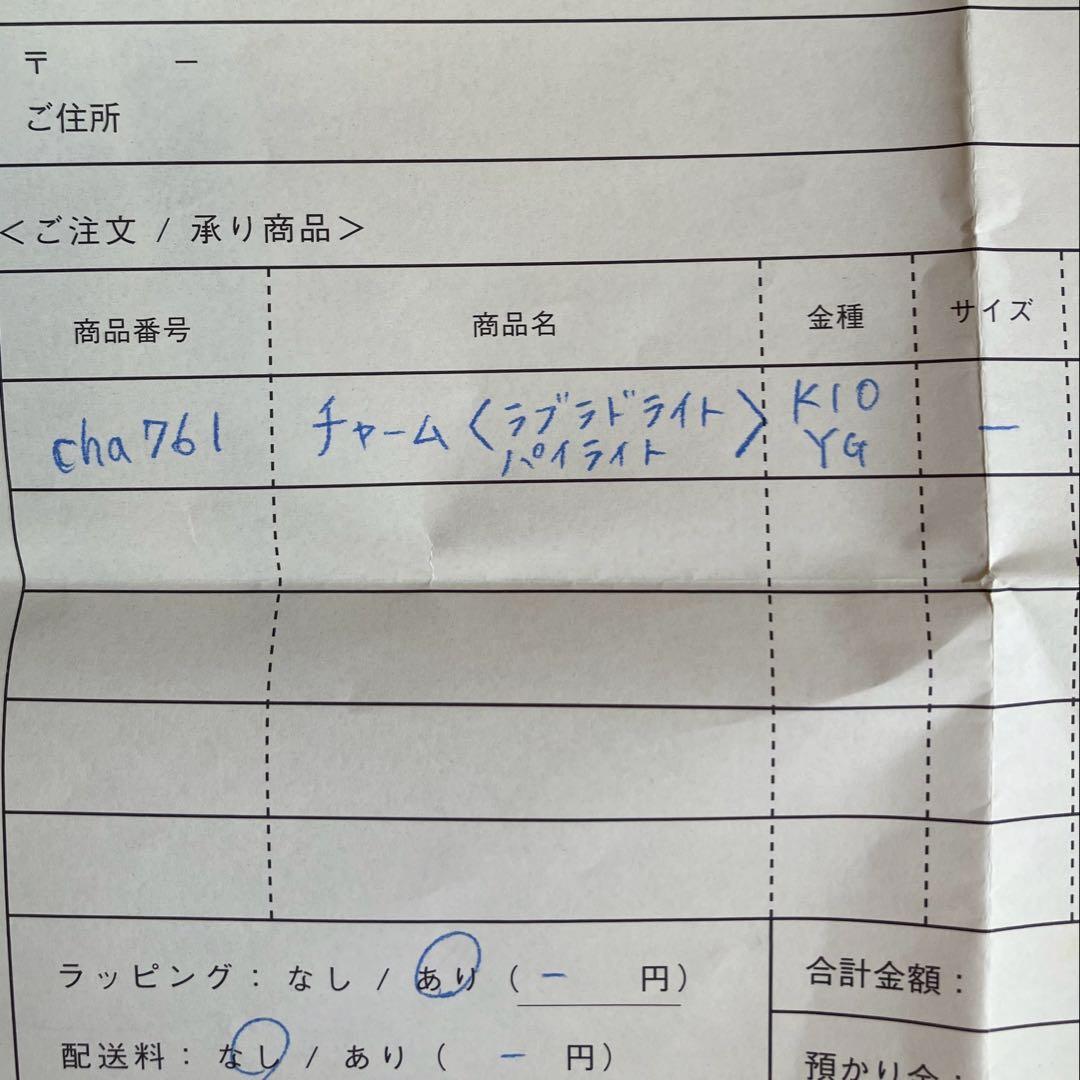 〒 －
ご住所
＜ご注文 / 承り商品＞
商品番号 商品名 金種 サイズ
cha761 チャーム〈ラブラドライト パイライト〉 K10 YG －
ラッピング： なし / あり （ － 円）
合計金額：
配送料： なし / あり （ － 円）
預かり金：